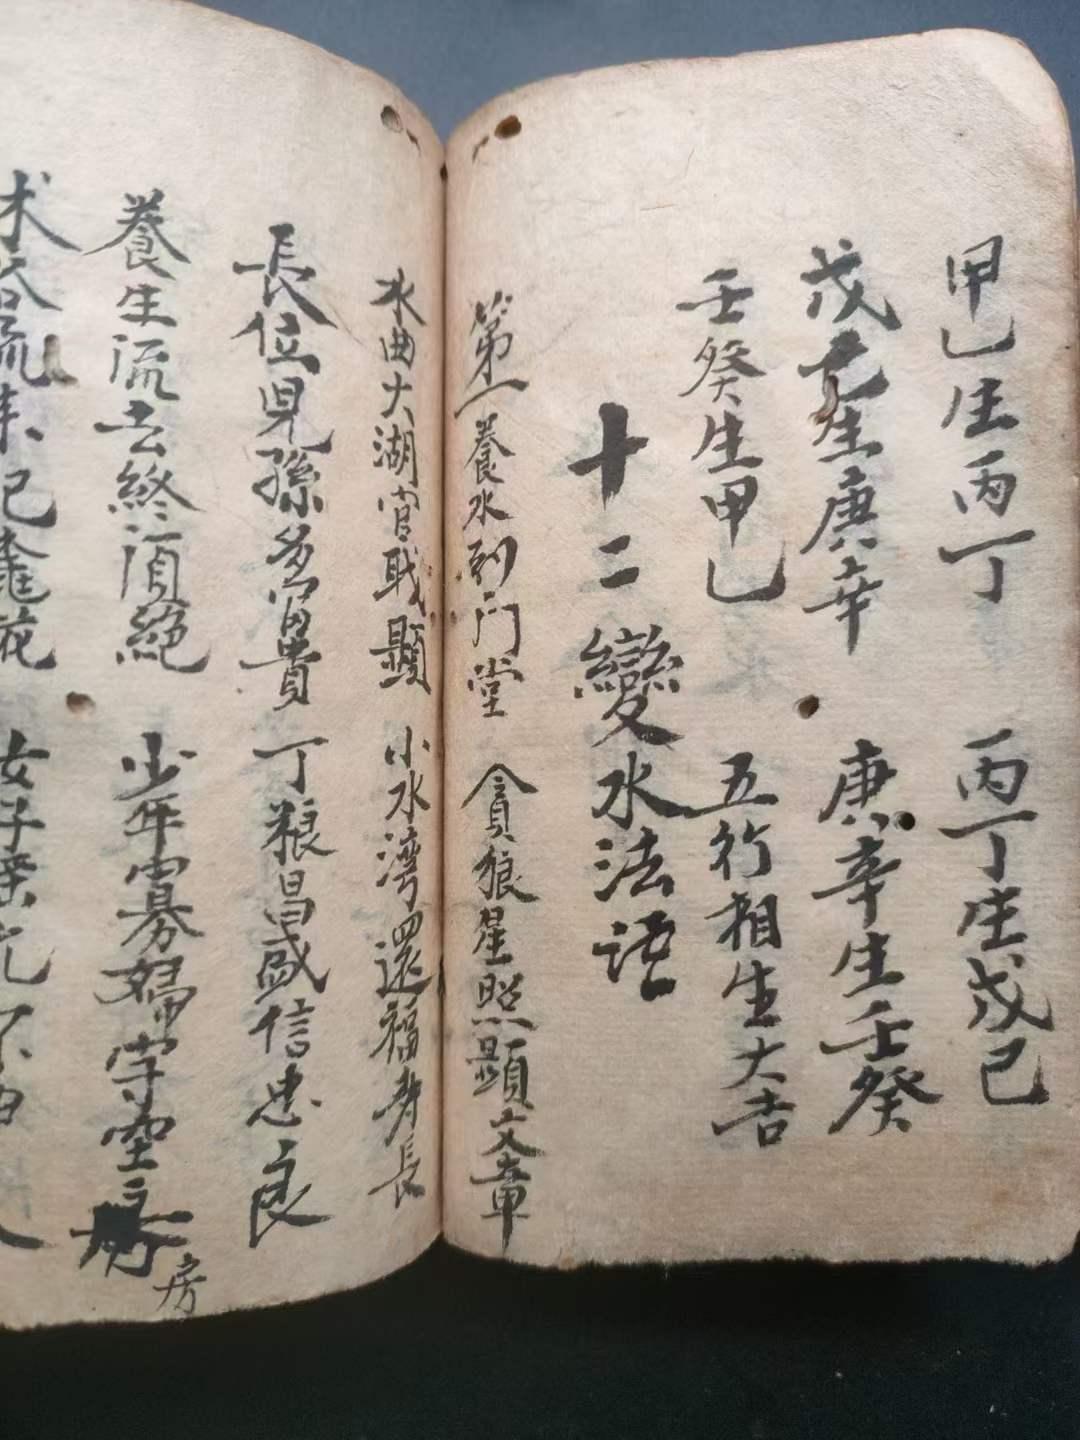 甲乙生丙丁 丙丁生戊己
戊己生庚辛 庚辛生壬癸
壬癸生甲乙 五行相生大吉
十二變水法語
第一養水到門堂 貪狼星照顯文章
水曲大湖官职顯 小水湾還福寿長
長位児孫多富貴 丁粮昌盛信忠良
養生流去終須絕 少年寡婦守空房
房
沐浴流来犯 女子